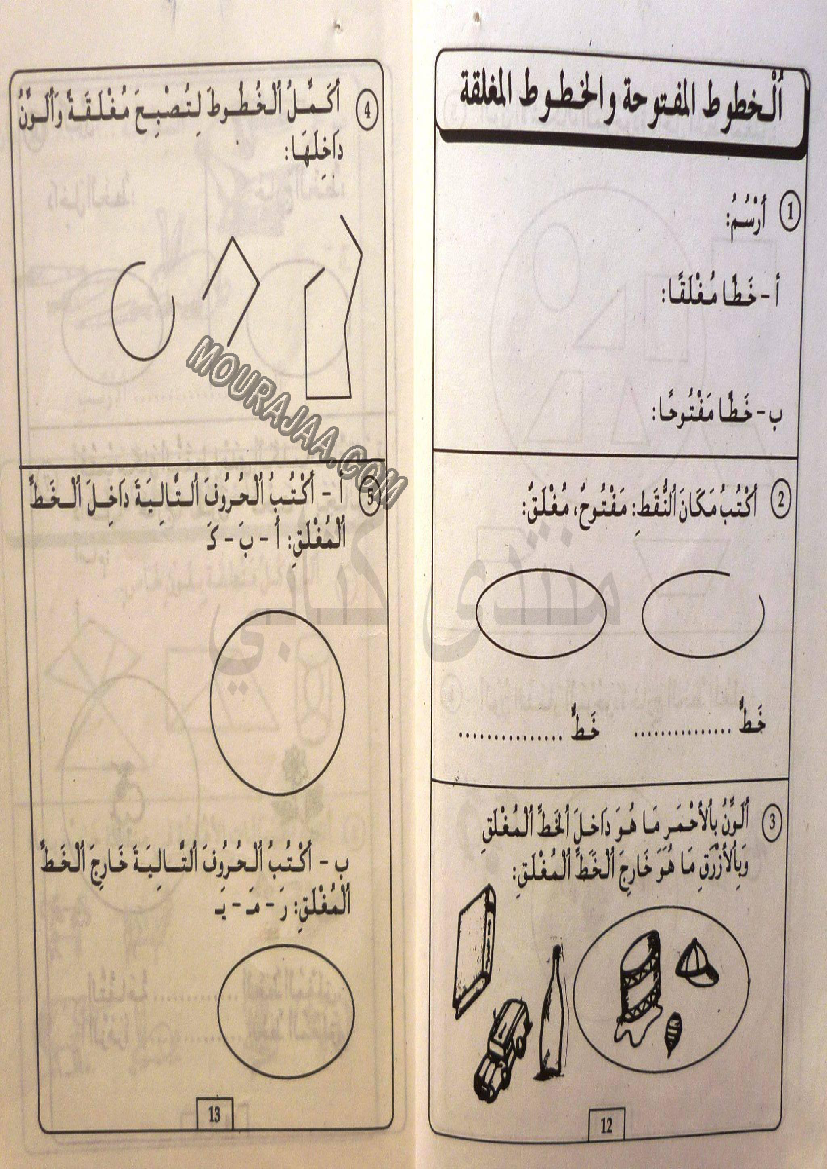 أَلْخطوط المفتوحة والخطوط المغلقة
1 أَرْسُمُ:
أ - خَطًّا مُغْلَقًا:
ب - خَطًّا مَفْتُوحًا:
2 أَكْتُبُ مَكَانَ ٱلنُّقَطِ: مَفْتُوحٌ، مُغْلَقٌ:
خَطٌّ ............... خَطٌّ ...............
3 أُلَوِّنُ بِٱلْأَحْمَرِ مَا هُوَ دَاخِلَ ٱلْخَطِّ ٱلْمُغْلَقِ
وَبِٱلْأَزْرَقِ مَا هُوَ خَارِجَ ٱلْخَطِّ ٱلْمُغْلَقِ:
12
4 أُكَمِّلُ ٱلْخُطُوطَ لِتُصْبِحَ مُغْلَقَةً وَأُلَوِّنُ
دَاخِلَهَا:
5 أ - أَكْتُبُ ٱلْحُرُوفَ ٱلتَّالِيَةَ دَاخِلَ ٱلْخَطِّ
ٱلْمُغْلَقِ: أَ - بَ - كَ
ب - أَكْتُبُ ٱلْحُرُوفَ ٱلتَّالِيَةَ خَارِجَ ٱلْخَطِّ
ٱلْمُغْلَقِ: رَ - مَـ - يَـ
13
MOURAJAA.COM
منتدى كتابي